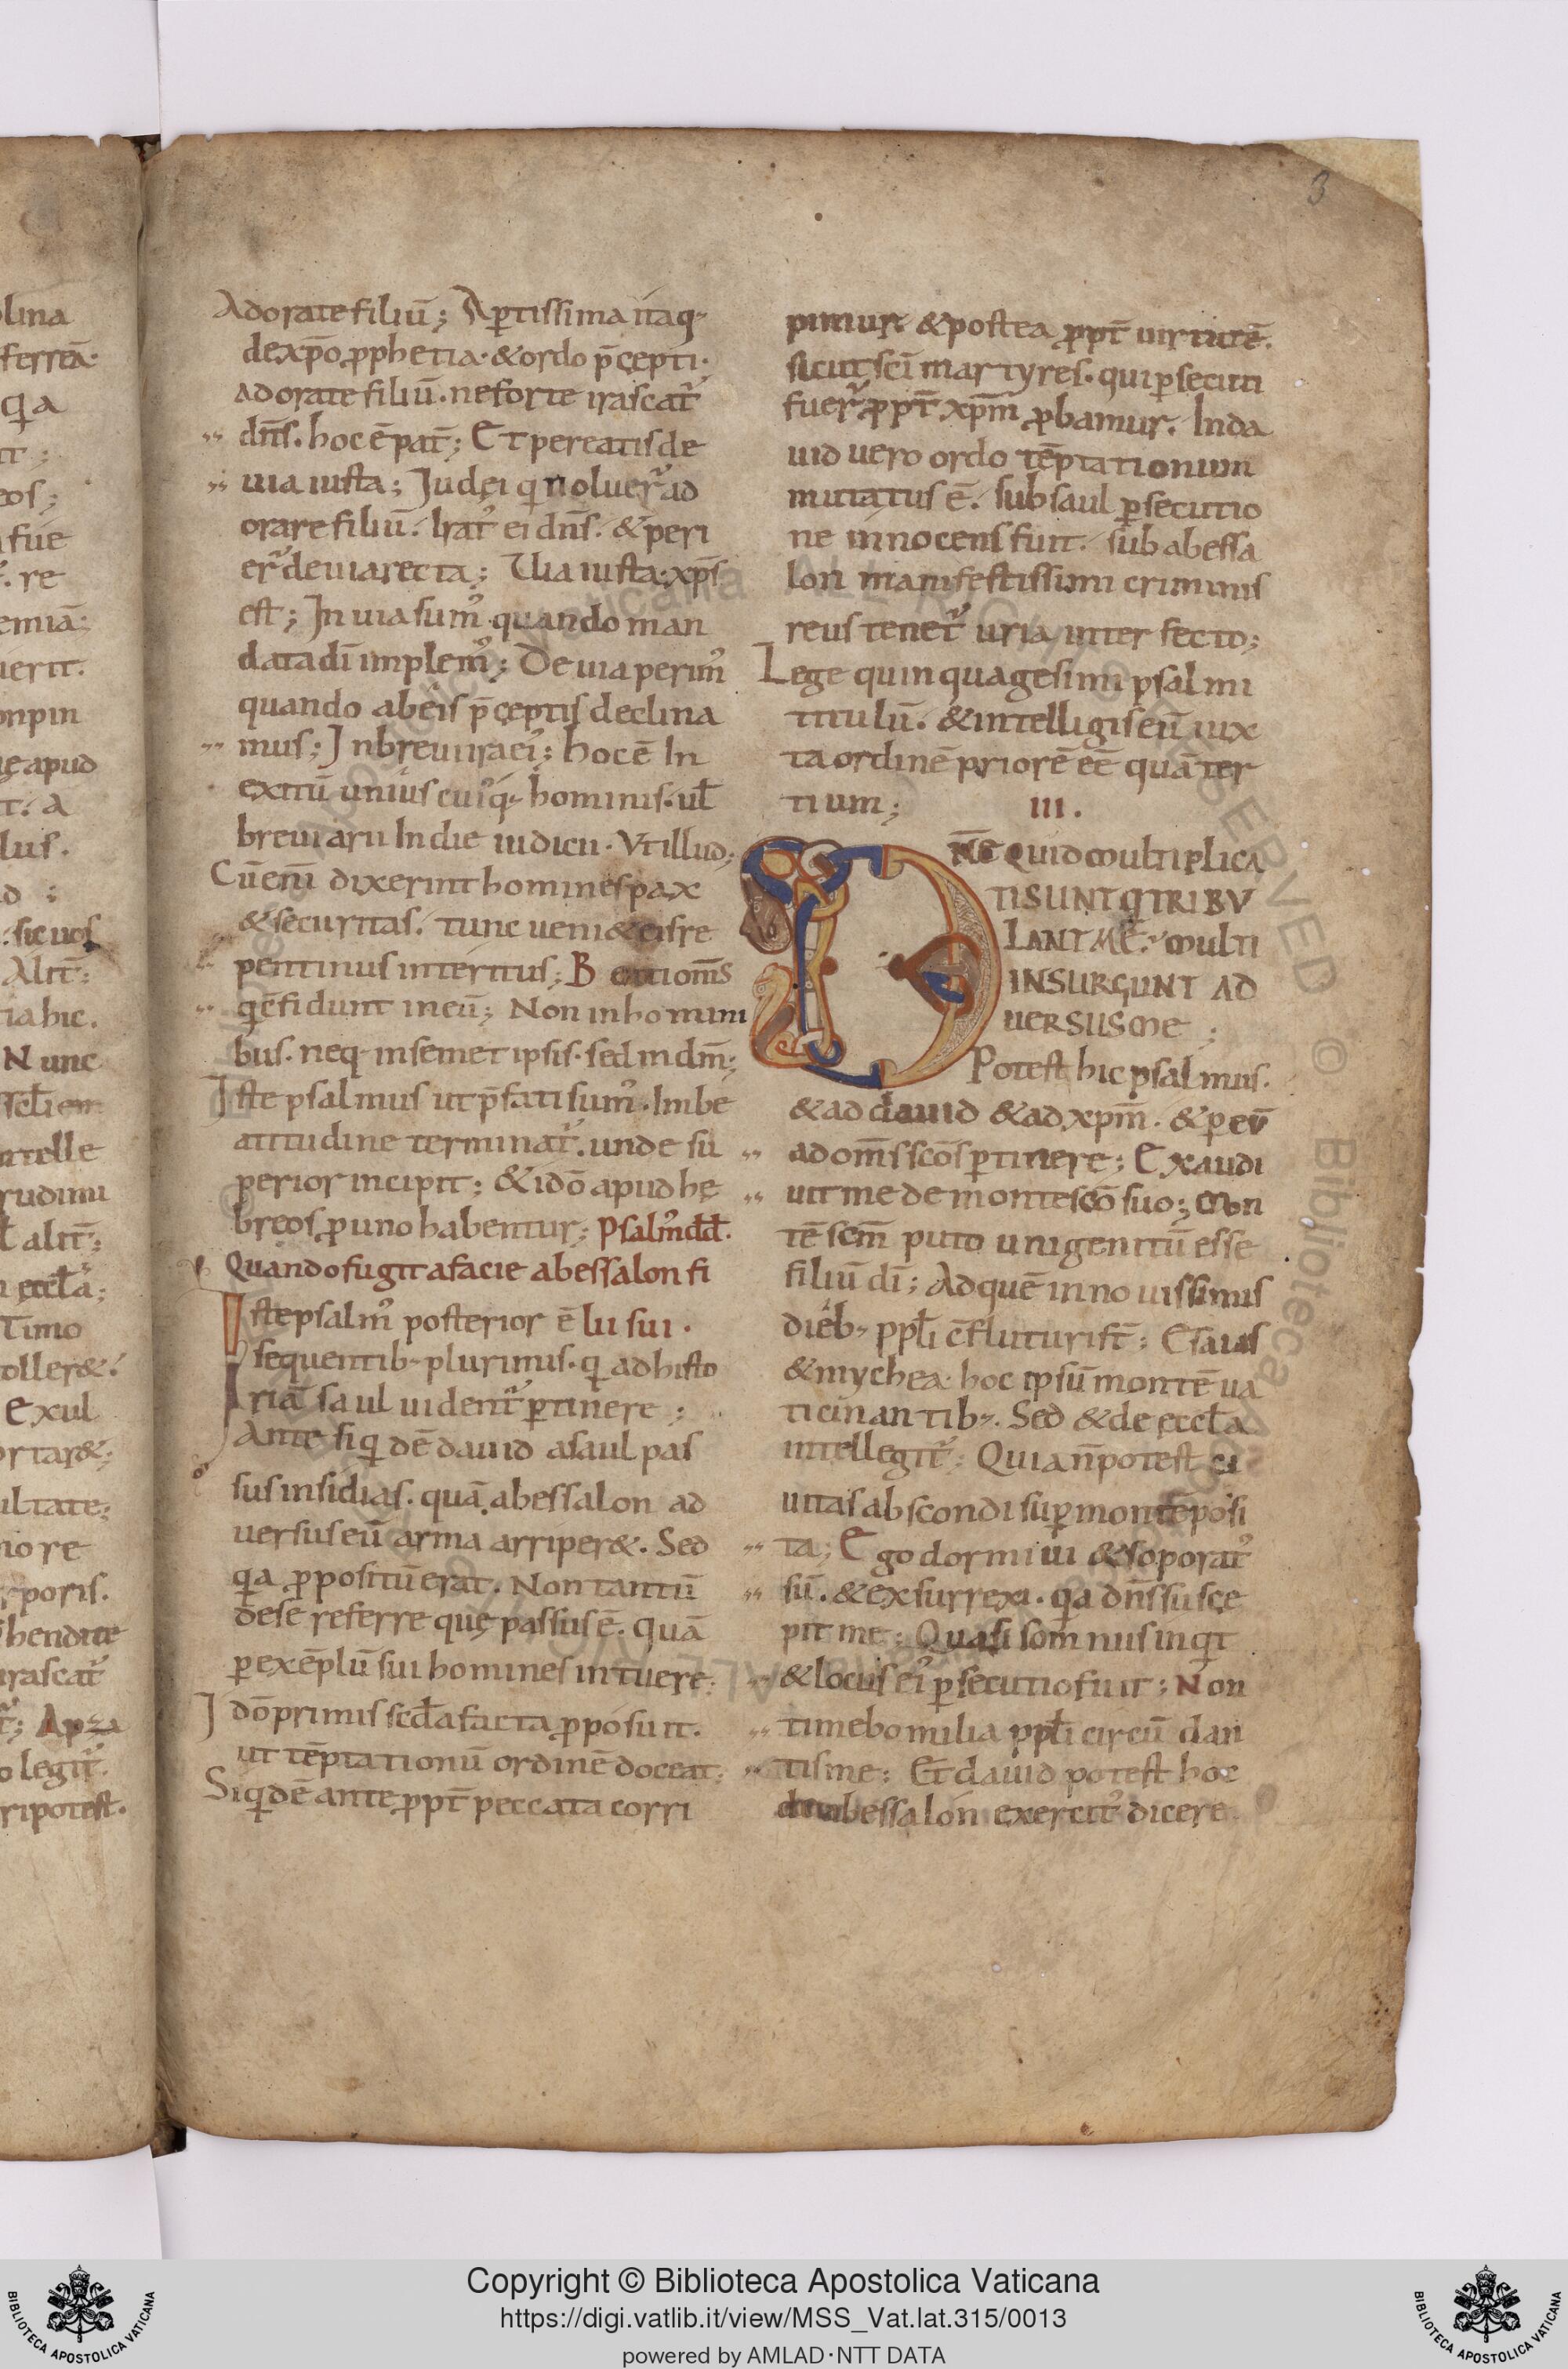 3
Adorate filiū; Apertissima itaq;
de xp̄o ꝓphetia· & ordo p̄cepti·
adorate filiū· ne forte irascat᷑
dn̄s. hoc ē pat̄; Et pereatis de
uia iusta; Judęi qi noluer᷑ ad
orare filiū. Irat᷒ ei dn̄s. & peri
er᷑ de uia recta; Uia iusta· xp̄s
est; In uia sum᷒ quando man
data dī implem᷒; De uia perim᷒
quando ab eis p̄ceptis declina
mus; In breui ira ei᷒; hoc ē In
exitū unius cui᷒q; hominis. ut
breuiarii In die iudicii. Vt illud;
Cū enī dixerint homines pax
& securitas. tunc ueni& eis re
pentinus interitus; B eati om̄s
qi c̄fidunt in eū; Non in homini
bus. neq; in semet ipsis. sed in dn̄;
Iste psalmus ut p̄fati sum᷒. In be
atitudine terminat᷑. unde su
perior incipit; & idō apud hę
breos ꝓ uno habentur; Psalm᷒ dd.
Quando fugit a facie abessalon fi
Iste psalm᷒ posterior ē lii sui ·
sequentib; plurimis. qi ad histo
riā saul uident᷑ ꝑtinere;
Ante siqidē dauid a saul pas
sus insidias. quā abessalon ad
uersus eū arma arriper&. Sed
qa ꝓpositū erat. Non tantū
de se referre que passus ē. Quā
ꝑ exēplū sui homines intuere;
Idō primis scd̄a facta ꝓposuit.
ut tēptationū ordinē doceat;
Siqidē ante ꝓpt̄ peccata corri
pimur & postea ꝓpt̄ uirtutē.
sicut sci martyres. qui ꝑsecuti
fuer᷑ ꝓpt̄ xp̄m ꝓbamur. In da
uid uero ordo tēptationum
mutatus ē. sub saul ꝑsecutio
ne innocens fuit. sub abessa
lon manifestissimi criminis
reus tenet᷑ uria inter fecto;
Lege quinquagesimi psalmi
titulū. & intelligis eū iux
ta ordinē priorē eē quā ter
tium; III.
Dn̄e quid multiplica
ti sunt qi tribu
lant mē. multi
insurgunt ad
uersus me;
Potest hic psalmus.
& ad dauid & ad xp̄m. & ꝑ eū
ad om̄s scōs ꝑtinere; Exaudi
uit me de monte scō suo; Mon
tē scm̄ puto unigenitū esse
filiū dī; Ad quē in nouissimis
dieb; ppl̄i c̄fluituri st̄; Esaias
& mychea hoc ipsū montē ua
ticinantib;. Sed & de eccl̄a
intellegit᷑; Quia n̄ potest ci
uitas abscondi suꝑ montē posi
ta; Ego dormiui & soporat᷒
sū. & exsurrexi. qa dn̄s susce
pit me; Quasi som nus inqit
& locus ei᷒ ꝑsecutio fuit; Non
timebo milia ppl̄i circū dan
tis me; Et dauid potest hoc
de abessalon exercit᷒ dicere
Copyright © Biblioteca Apostolica Vaticana
https://digi.vatlib.it/view/MSS_Vat.lat.315/0013
powered by AMLAD·NTT DATA
BIBLIOTECA APOSTOLICA VATICANA
BIBLIOTECA APOSTOLICA VATICANA